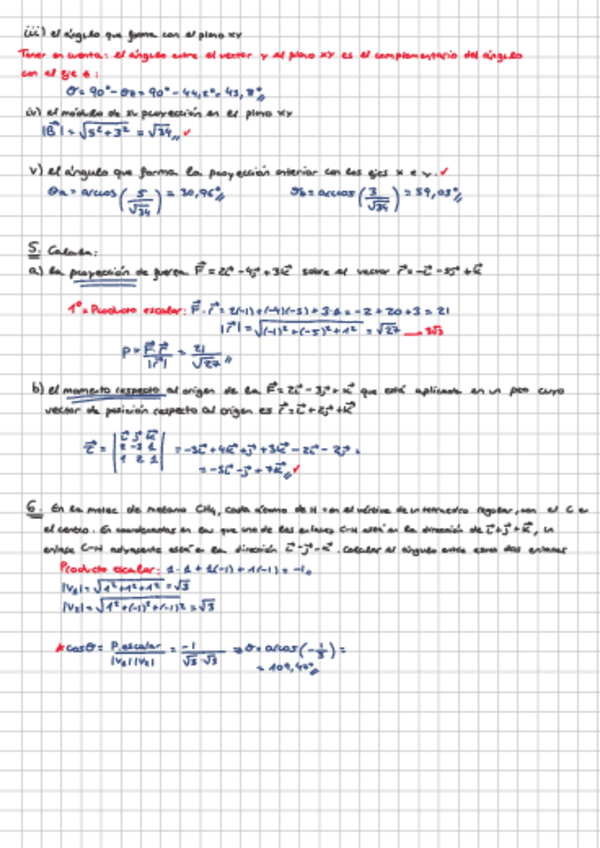 iii) el ángulo que forma con el plano xy
Tener en cuenta: el ángulo entre el vector y el plano XY es el complementario del ángulo
con el eje z:
θ = 90° - θz = 90° - 44,2° = 45,8°
iv) el módulo de su proyección en el plano xy
|B'| = √5² + 3² = √34 ✓
v) el ángulo que forma la proyección anterior con los ejes x e y. ✓
θa = arccos (5/√34) = 30,96° θb = arccos (3/√34) = 59,03°
5. Calcula:
a) la proyección de fuerza F = 2i - 4j + 3k sobre el vector r = -i - 5j + k
1º = Producto escalar: F · r = 2(-1) + (-4)(-5) + 3·1 = -2 + 20 + 3 = 21
|r| = √(-1)² + (-5)² + 1² = √27 → 3√3
P = F·r/|r| = 21/√27
b) el momento respecto al origen de la F = 2i - 3j + k que está aplicada en un pto cuyo
vector de posición respecto al origen es r = i + 2j + k
τ = | i j k |
| 2 -3 1 | = -3i + 4k + j + 3k - 2i - 2j =
| 1 2 1 | = -5i - j + 7k ✓
6. En la molec de metano CH4, cada átomo de H en el vértice de un tetraedro regular, con el C en
el centro. En coordenadas en las que uno de los enlaces C-H está en la dirección de i + j + k, un
enlace C-H adyacente está en la dirección i - j - k. Calcular el ángulo entre estos dos enlaces
Producto escalar: 1·1 + 1(-1) + 1(-1) = -1
|V1| = √1² + 1² + 1² = √3
|V2| = √1² + (-1)² + (-1)² = √3
* cosθ = P.escalar/|V1||V2| = -1/√3·√3 ⇒ θ = arcos (-1/3) =
= 109,47°